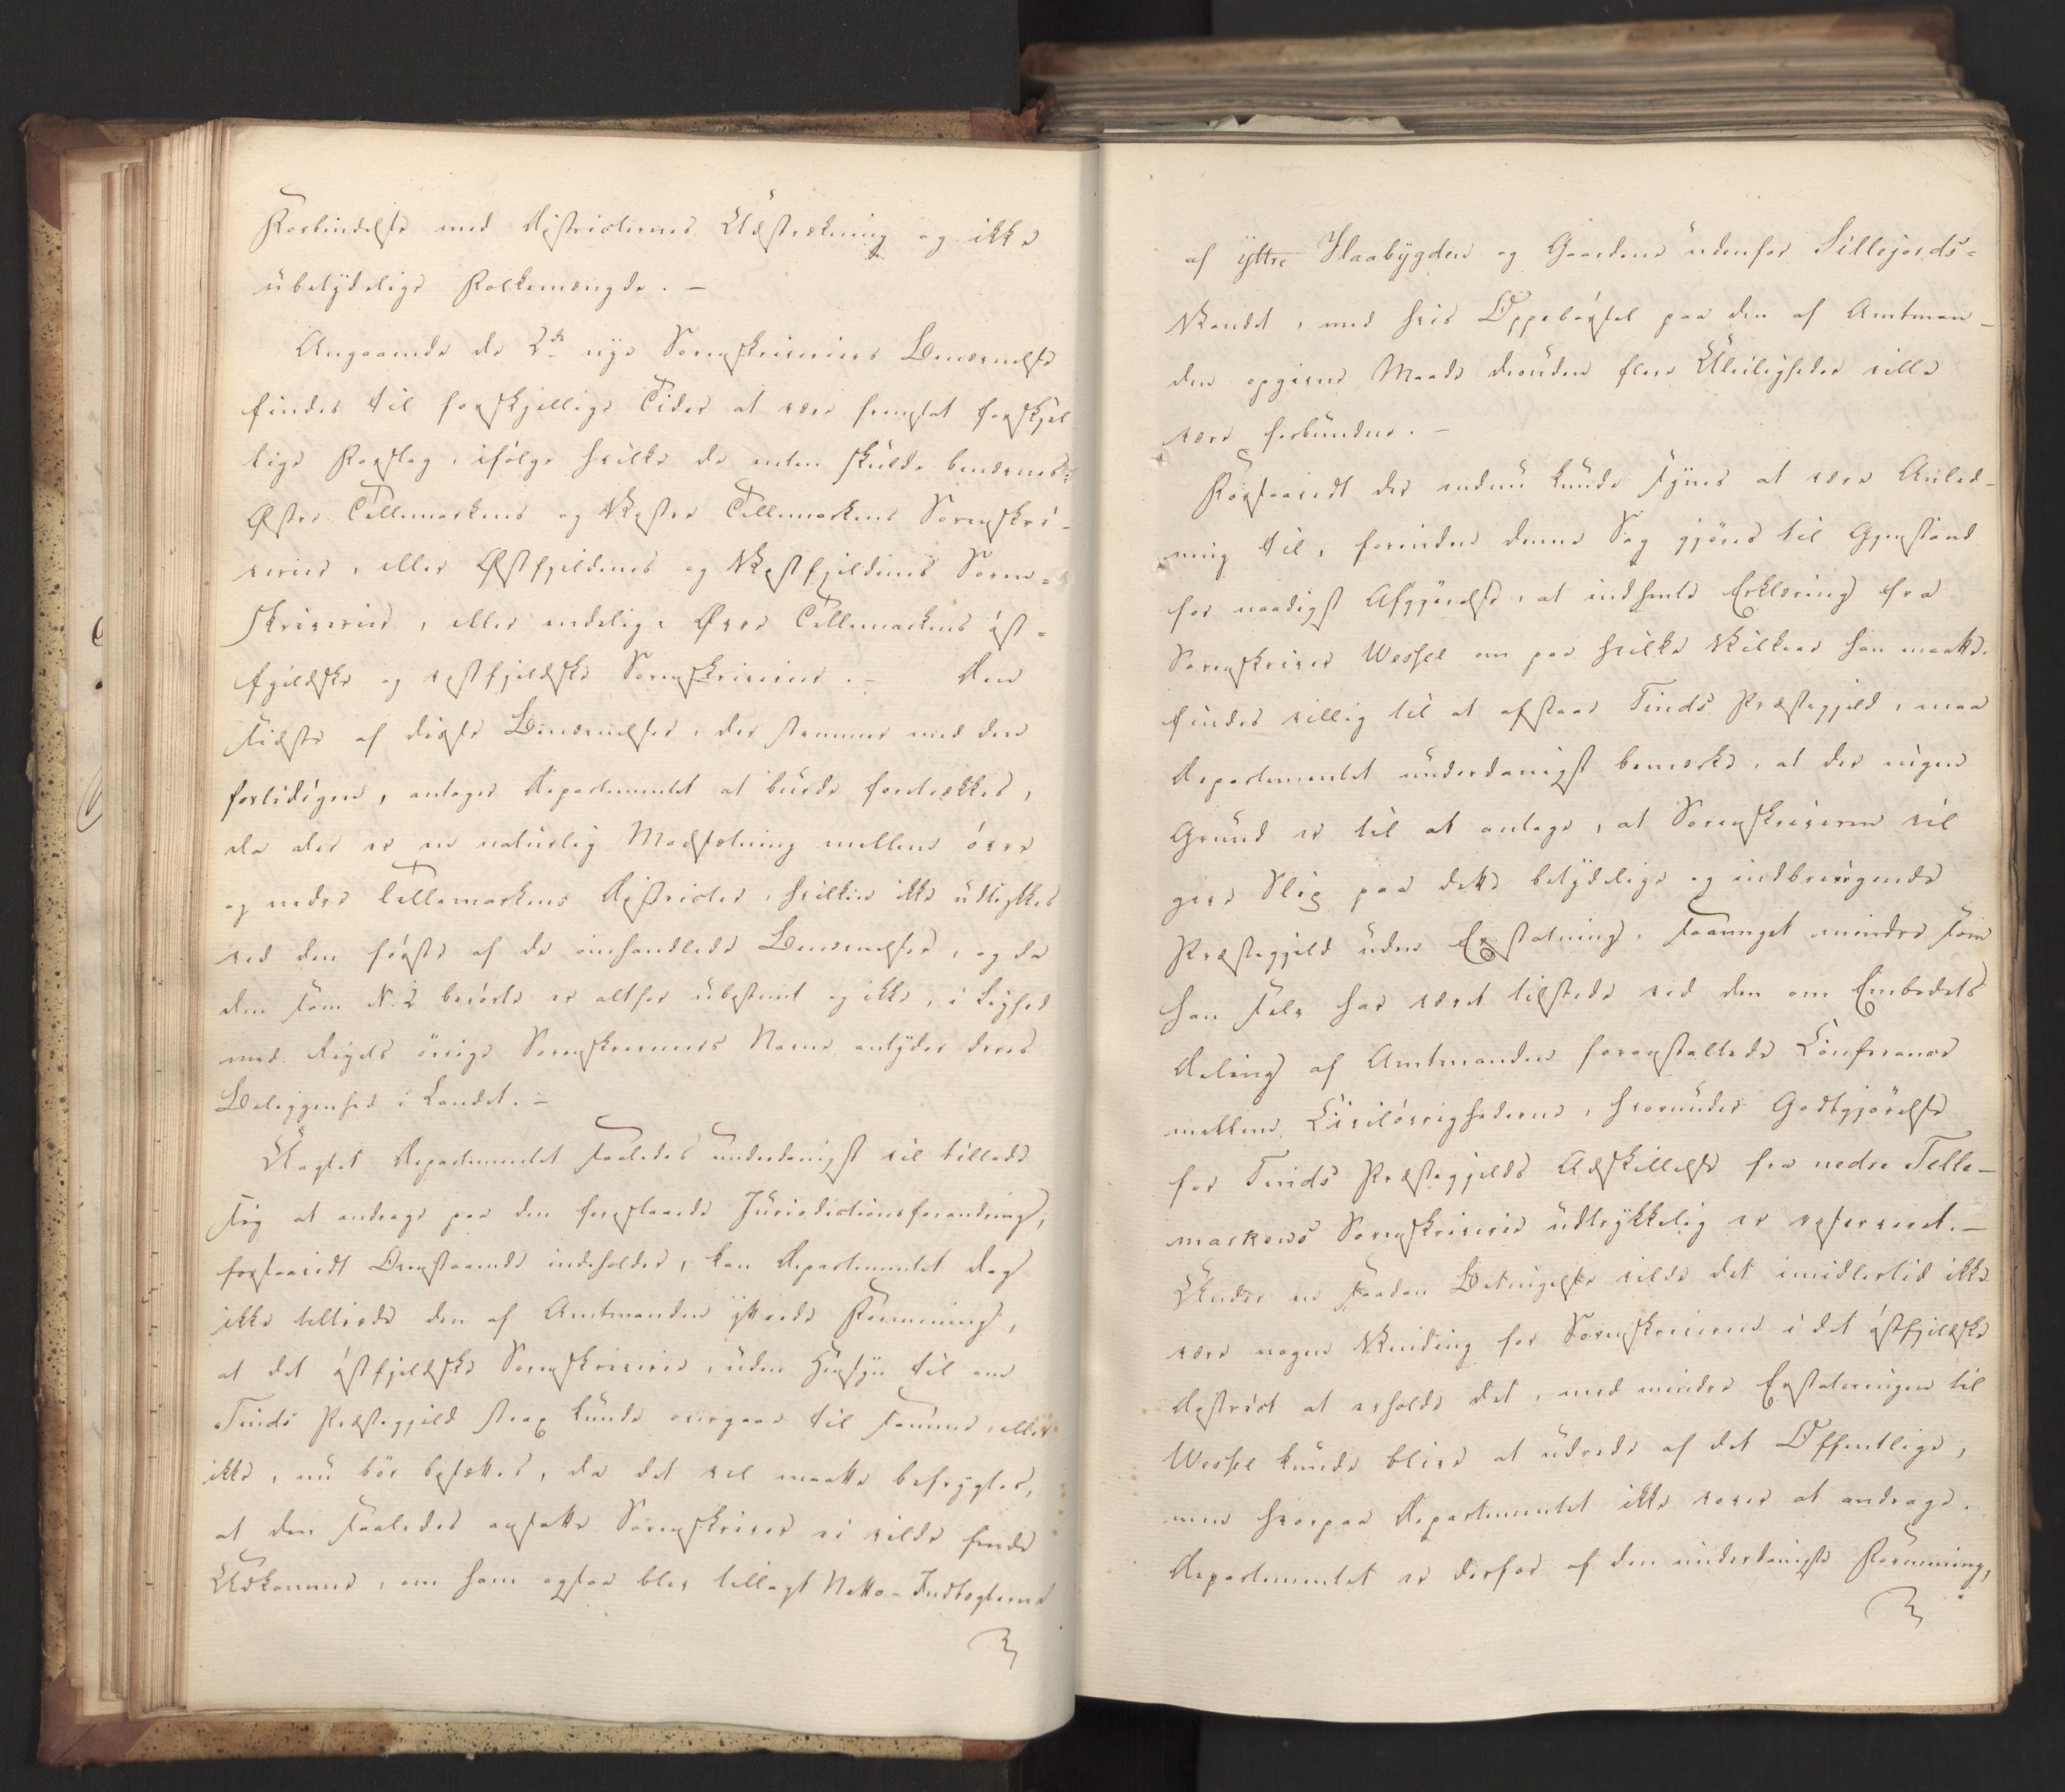 Forbindelse med Districternes Udstrækning og ikke
ubetydelige Folkemængde. –
Angaaende de 2de nye Sorenskriveriers Benævnelse
findes til forskjellige Tider at være fremsat forskjel
lige Forslag, ifølge hvilke de enten skulde benævnes:
Øster Tellemarkens og Vester Tellemarkens Sorenskri-
verier, eller Østfjeldenes og Vestfjeldenes Soren-
skriverier, eller endelig: Øvre Tellemarkens øst-
fjeldske og vestfjeldske Sorenskriverier. – Den
sidste af disse Benævnelser, der stemmer med den
fortidigen, antager Departementet at burde foretrækkes,
da der er en naturlig Modsætning mellem övre
og nedre Tellemarkens Districter, hvilken ikke udtrykkes
ved den förste af de omhandlede Benævnelser, og da
den som N. 2 berörte er altfor ubestemt og ikke, i Lighed
med Rigets övrige Sorenskriveriers Navne antyder deres
Beliggenhed i Landet. –
Uagtet Departementet saaledes underdanigst vil tillade
sig at andrage paa den foreslaaede Jurisdictionsforandring,
forsaavidt Ovenstaaende indeholder, kan Departementet dog
ikke tiltræde den af Amtmanden yttrede Formening,
at det östfjeldske Sorenskriverie, uden Hensyn til om
Tinds Præstegjeld strax kunde overgaae til samme, eller
ikke, nu bör besættes, da det vel maatte befrygtes,
at den saaledes ansatte Sorenskriver ei vilde finde
Udkomme, om ham ogsaa blev tillagt Netto-Indtægterne
af yttre Flaabygden og Gaardene udenfor Sillejords-
Vandet, med hvis Oppebørsel paa den af Amtman-
den opgivne Maade desuden flere Uleiligheder ville
være forbundne. –
Forsaavidt der endnu kunde synes at være Anled-
ning til, forinden denne Sag gjöres til Gjenstand
for naadigst Afgjörelse, at indhente Erklæring fra
Sorenskriver Wessel om paa hvilke Vilkaar han maatte
findes villig til at afstaae Tinds Præstegjeld, maa
Departementet underdanigst bemærke, at der ingen
Grund er til at antage, at Sorenskriveren vil
give Slip paa dette betydelige og indbringende
Præstegjeld uden Erstatning, saameget mindre som
han selv har været tilstede ved den om Embedets
Deling af Amtmanden foranstaltede Conferance
mellem Civilövrighederne, hvorunder Godtgjörelse
for Tinds Præstegjelds Adskillelse fra nedre Telle-
markens Sorenskriverie udtrykkelig er reserveret. –
Under en saadan Betingelse vilde det imidlertid ikke
være nogen Vinding for Sorenskriveren i det östfjeldske
District at erholde det, med mindre Erstatningen til
Wessel kunde blive at udrede af det Offentlige,
men hvorpaa Departementet ikke vover at andrage.
Departementet er derfor af den underdanigste Formening,